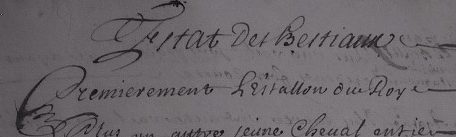 Estat Des Bestiaux
Premierement L'Estallon du Roy
Plus un autre jeune Cheval entier